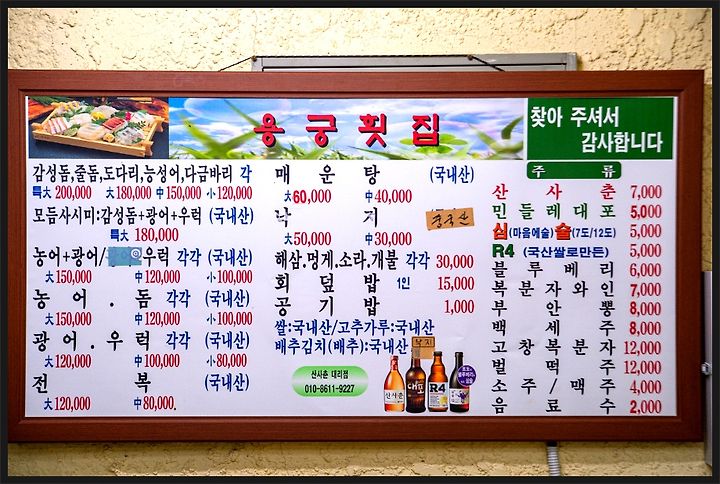 용궁횟집
찾아 주셔서
감사합니다
감성돔,줄돔,도다리,능성어,다금바리 각
特大 200,000 大180,000 中150,000 小120,000
모듬사시미:감성돔+광어+우럭 (국내산)
特大 180,000
농어+광어/ 우럭 각각 (국내산)
大150,000 中120,000 小100,000
농어.돔 각각 (국내산)
大150,000 中120,000 小100,000
광어.우럭 각각 (국내산)
大120,000 中100,000 小80,000
전복 (국내산)
大120,000 中80,000
매운탕 (국내산)
大60,000 中40,000
낙지 중국산
大50,000 中30,000
해삼.멍게,소라,개불 각각 30,000
회덮밥 1인 15,000
공기밥 1,000
쌀:국내산/고추가루:국내산
배추김치(배추):국내산
낙지
산사춘 대리점
010-8611-9227
산사춘
대포
R4
주류
산사춘 7,000
민들레대포 5,000
심(마음예술)술(7도/12도) 5,000
R4 (국산쌀로만든) 5,000
블루베리 6,000
복분자와인 7,000
부안뽕 8,000
백세주 8,000
고창복분자 12,000
벌떡주 12,000
소주/맥주 4,000
음료수 2,000